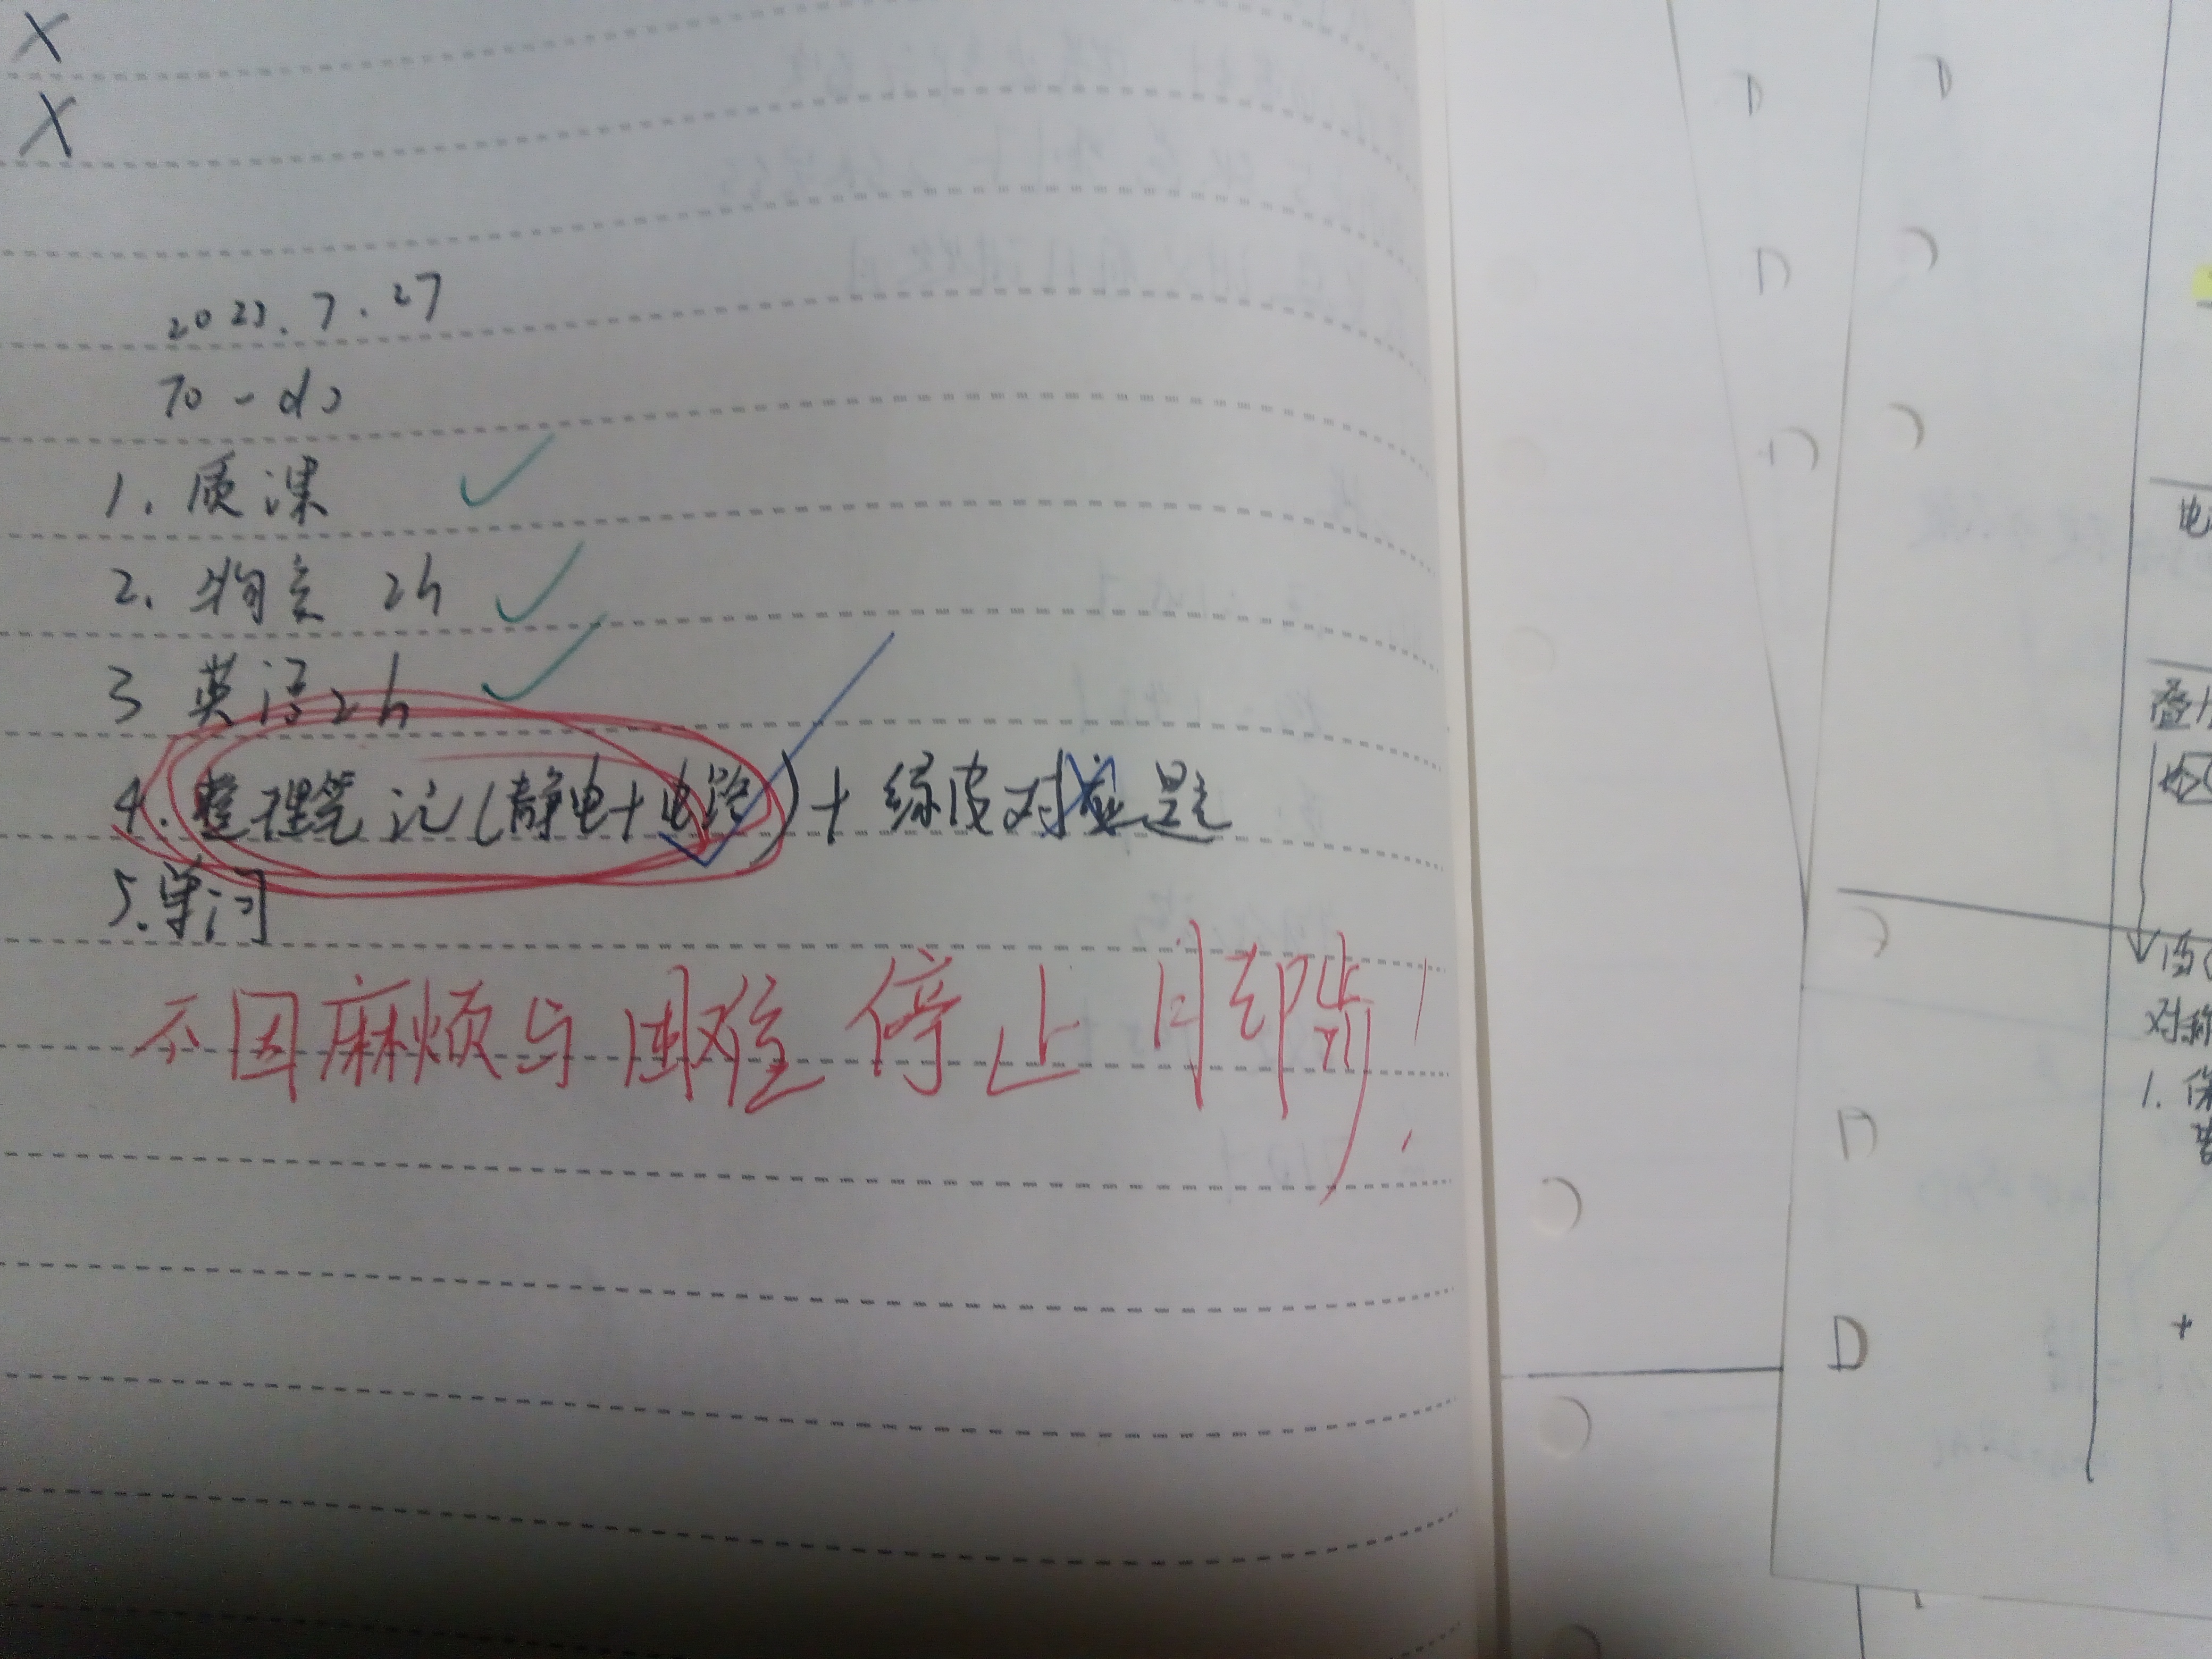 X
X
2023.7.27
To-do
1. 质课
2. 物竞 2h
3 英语2h
4. 整理笔记(静电+电路)+绿皮对应题
5.单词
不因麻烦与困难停止自部!
D
D
D
电
叠
对称
1. 保
D
+